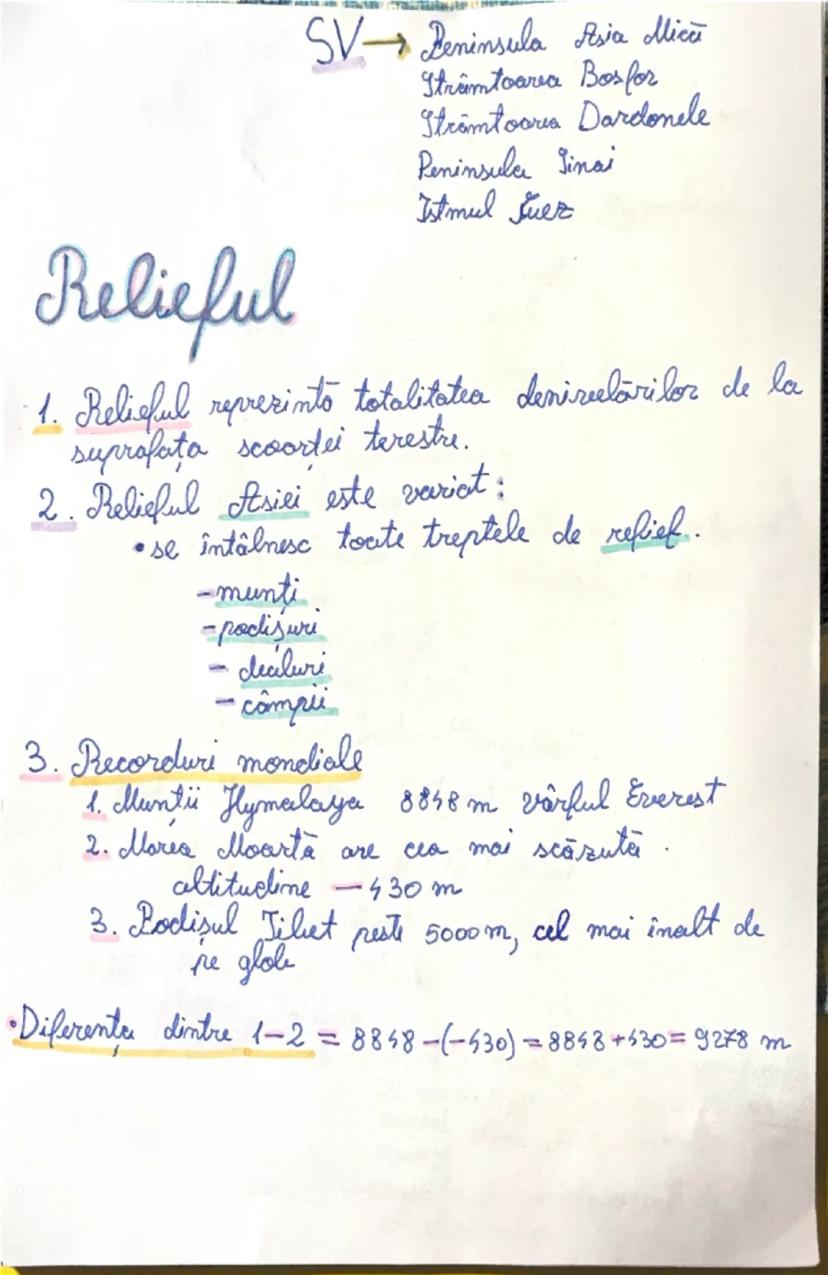 SV → Peninsula Asia Mică
Strâmtoarea Bosfor
Strâmtoarea Dardanele
Peninsula Sinai
Istmul Suez
Relieful
1. Relieful reprezintă totalitatea denivelărilor de la
suprafața scoarței terestre.
2. Relieful Asiei este variat:
• se întâlnesc toate treptele de relief.
- munți
- podișuri
- dealuri
- câmpii
3. Recorduri mondiale
1. Munții Hymalaya 8848 m vârful Everest
2. Marea Moartă are cea mai scăzută
altitudine - 430 m
3. Podișul Tibet peste 5000 m, cel mai înalt de
pe glob
• Diferența dintre 1-2 = 8848-(-430) = 8848+430= 9278 m